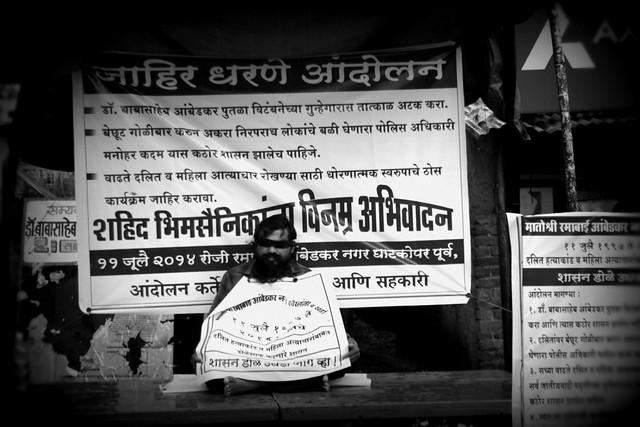 जाहिर धरणे आंदोलन
डॉ. बाबासाहेब आंबेडकर पुतळा विटंबनेच्या गुन्हेगारास तात्काळ अटक करा.
बेछूट गोळीबार करुन अकरा निरपराध लोकांचे बळी घेणारा पोलिस अधिकारी
मनोहर कदम यास कठोर शासन झालेच पाहिजे.
वाढते दलित व महिला अत्याचार रोखण्या साठी धोरणात्मक स्वरुपाचे ठोस
कार्यक्रम जाहिर करावा.
शहिद भिमसैनिकांना विनम्र अभिवादन
११ जूलै २०१४ रोजी रमाबाई आंबेडकर नगर घाटकोपर पूर्व,
आंदोलन कर्ते आणि सहकारी
आंबेडकर
११ जुलै
२०१४
दलित हत्याकांड व महिला अत्याचाराबाबत
शासन डोळे उघडा जाग व्हा!
डॉ.बाबासाहेब
मातोश्री रमाबाई आंबेडकर
११ जुलै १९९७
दलित हत्याकांड व महिला
शासन डोळे
आंदोलन मागण्या :
१. डॉ. बाबासाहेब आंबेडकर
करा आणि त्यास कठोर शासन
२. दलितांवर बेछूट गोळीबार
घेणारा पोलीस अधिकारी
३. सध्या वाढते दलित व महिला
सर्व जातीयवादी
कठोर शासन